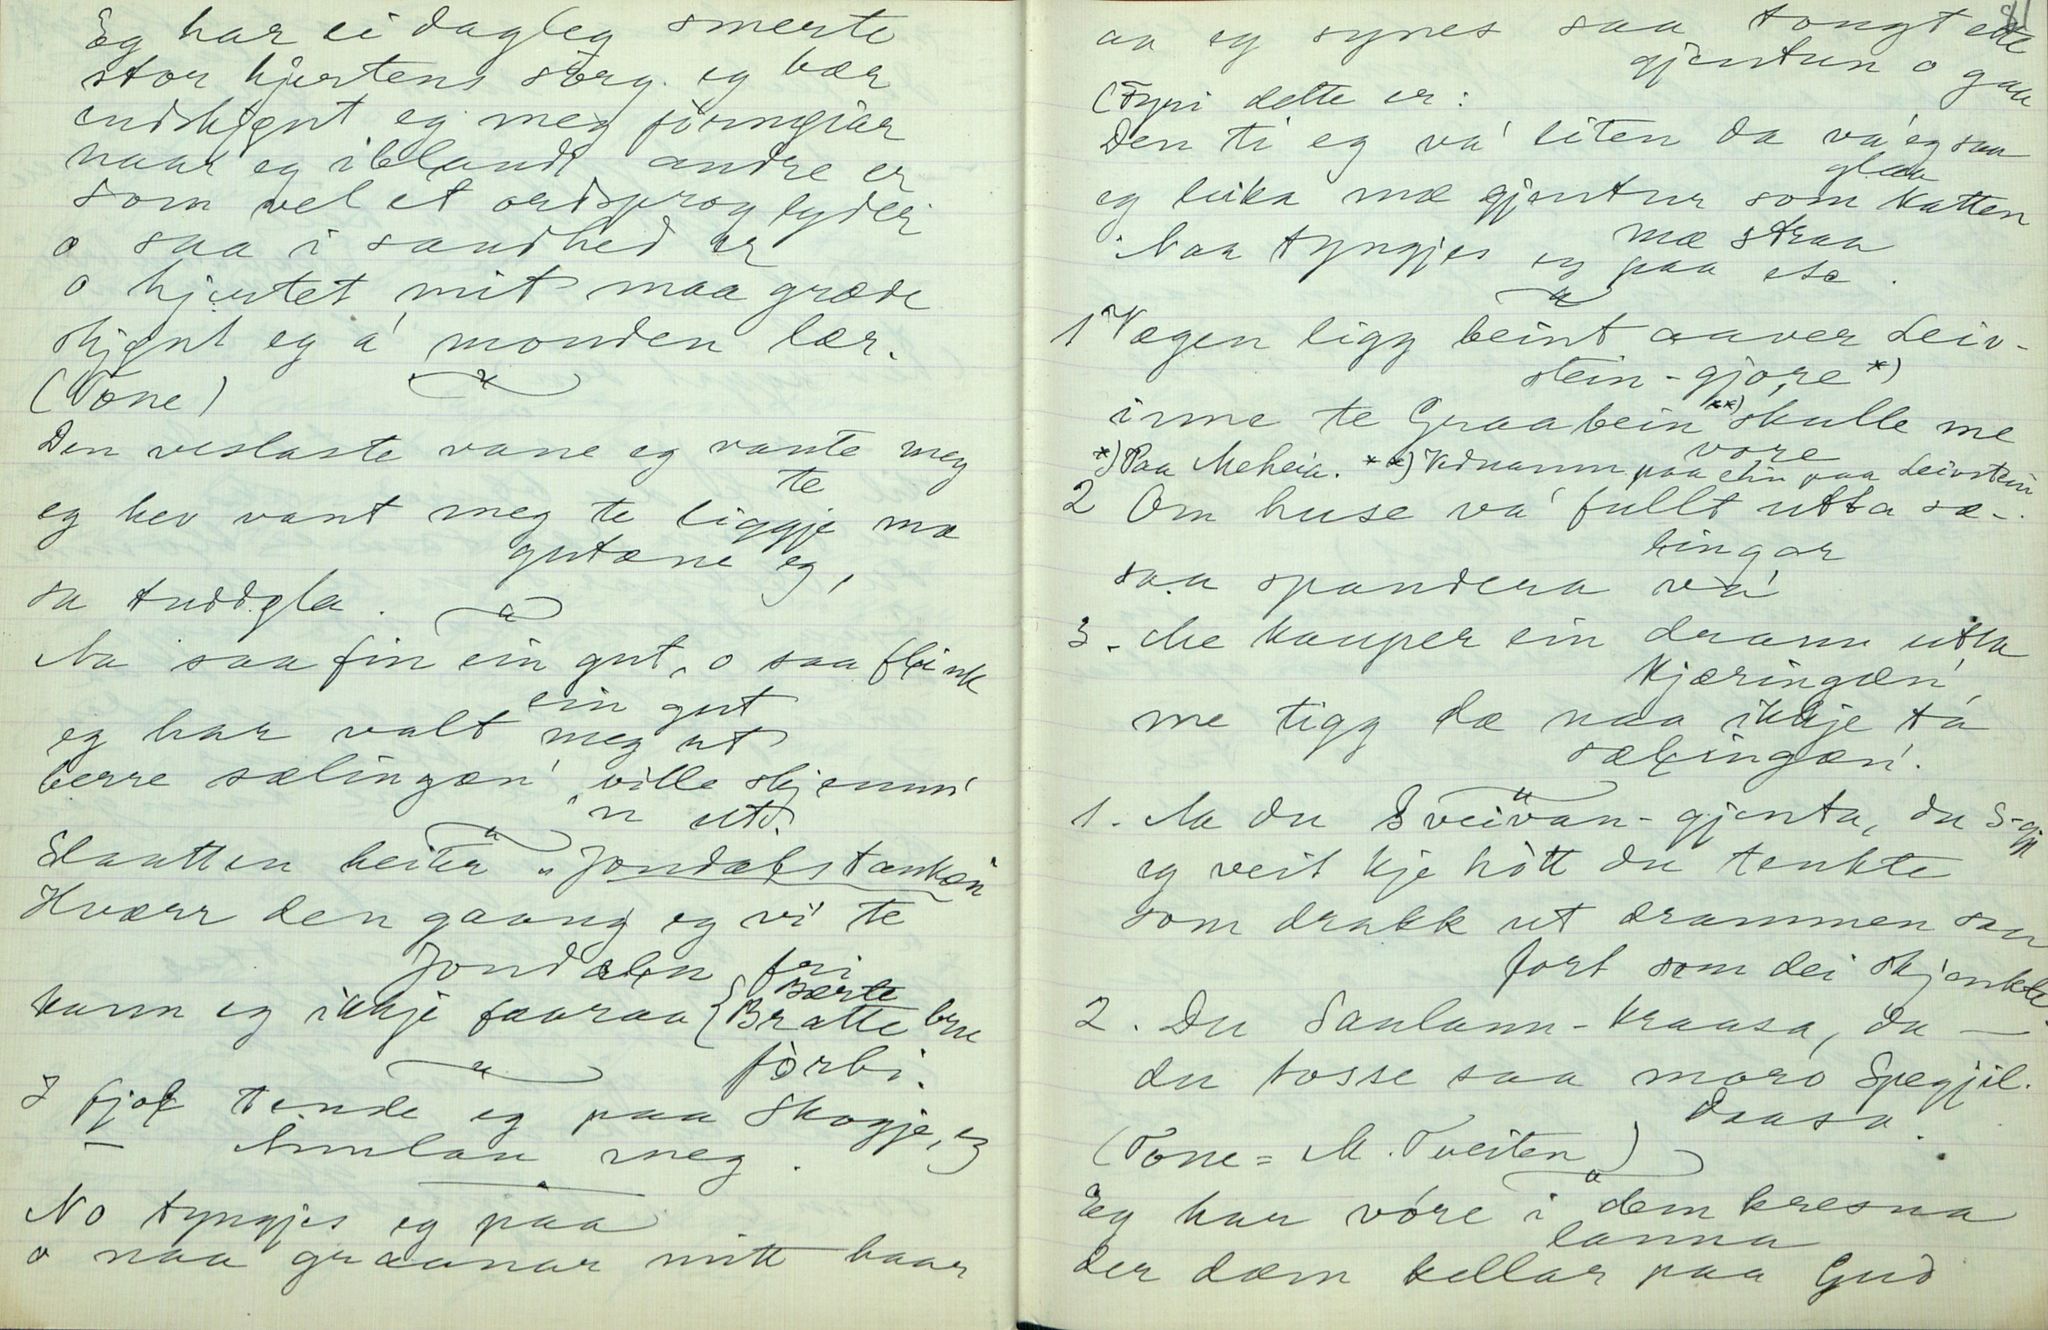 Eg har ei dagleg smerte
stor hjertens sorg eg bær
endskjønt eg meg fornøiar
naar eg iblandt andre er
som vel et ordsprog lyder
o saa i sandhed er
o hjertet mit maa græde
skjønt eg á monden lær.
(Tone)
Den veslaste vane eg vante meg
te
eg hev vant meg te liggje mæ
gutæne eg,
sa tuddgla.
Na saa fin ein gut, o saa flink
ein gut
eg har valt meg ut
berre sælingæn' ville skjemm'
'n ut.
Slaatten heiter "Jondalstanken
Hværr den gaang eg vi te
Jondalen fri
kann eg ikkje faaraa { Bratte bru
Bærte
forbi.
I fjol tende eg paa Skogje, eg
— Aimlau meg.
No tyngjes eg paa
o naa graanar mitt haar
81
aa eg synes saa tongt ette
gjentun o gaa
(Fyri dette er:
Den ti eg va' liten da va' eg saa
glaa
eg leika mæ gjentur som katten
mæ straa
Naa tyngjes eg paa etc.
1 Vægen ligg beint aaver Leiv-
stein-gjore *)
inne te Graabein **) skulle me
vore
*) Paa Meheia. **) Vdnamn paa ein paa Leivstein
2 Om huse va' fullt utta sæ-
lingar
saa spandera va'
3. Me kauper ein dramm utta
kjæringæn',
me tigg dæ naa ikkje ta
sælingæn'.
1. Na du Sveivan-gjenta, du S-gj
eg veit kje hott du tenkte
som drakk ut drammen saa
fort som dei skjenkte.
2. Du Saulann-kraasa, du —
du tosse saa moro Spegjil.
daasa.
(Tone = M. Tveiten)
Eg har vóre i dem kresna
lanna
der dæm kellar paa Gud